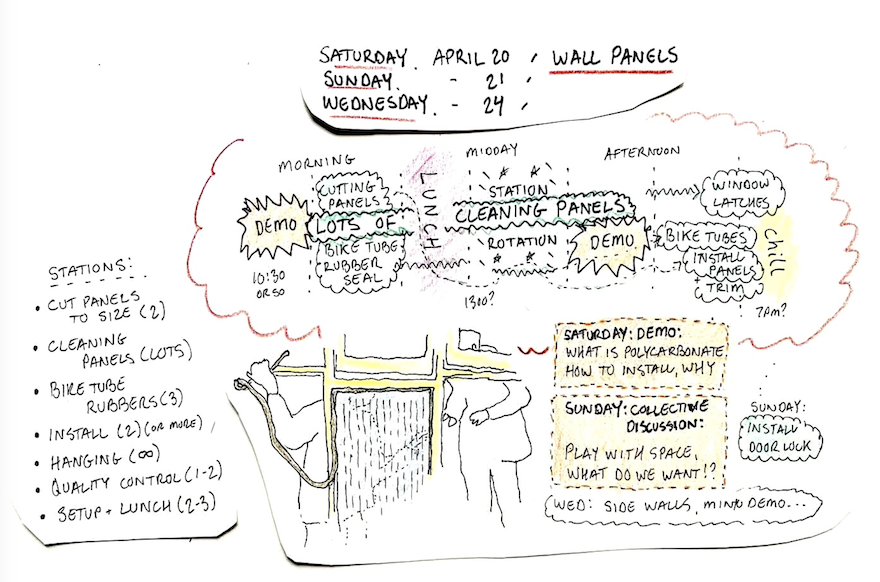 SATURDAY. APRIL 20, WALL PANELS
SUNDAY. - 21,
WEDNESDAY. - 24,
MORNING
MIDDAY
AFTERNOON
DEMO
10:30
OR SO
CUTTING
PANELS
LOTS OF
BIKE TUBE
RUBBER
SEAL
LUNCH
STATION
CLEANING PANELS
ROTATION
1300?
DEMO
WINDOW
LATCHES
BIKE TUBES
INSTALL
PANELS
+ TRIM
Chill
7pm?
STATIONS:
• CUT PANELS
TO SIZE (2)
• CLEANING
PANELS (LOTS)
• BIKE TUBE
RUBBERS (3)
• INSTALL (2) (OR MORE)
• HANGING (∞)
• QUALITY CONTROL (1-2)
• SETUP + LUNCH (2-3)
SATURDAY: DEMO:
WHAT IS POLYCARBONATE,
HOW TO INSTALL, WHY
SUNDAY: COLLECTIVE
DISCUSSION:
PLAY WITH SPACE,
WHAT DO WE WANT!?
SUNDAY:
INSTALL
DOOR LOCK
WED: SIDE WALLS, DEMO...